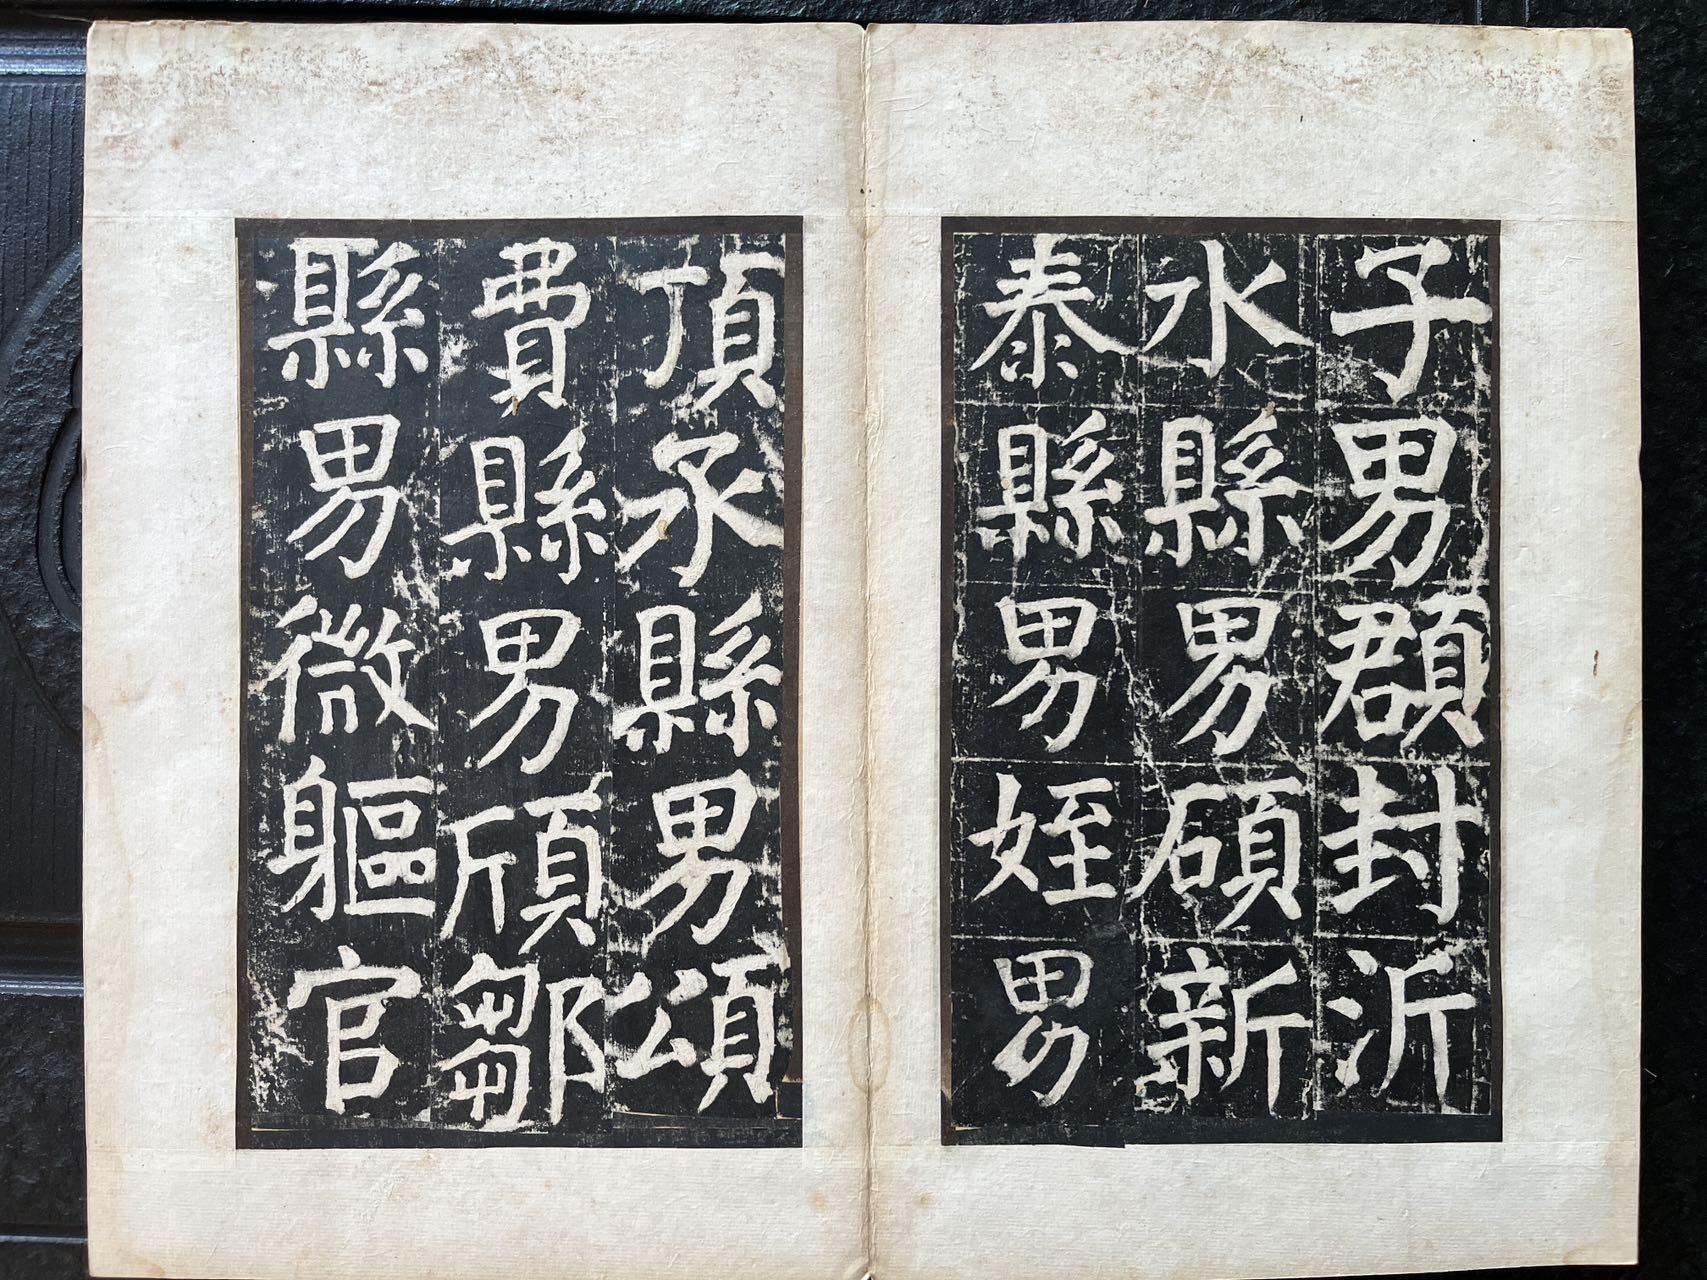 子男頵封沂
水縣男碩新
泰縣男姪男
頂承縣男頌
費縣男頎鄒
縣男微軀官